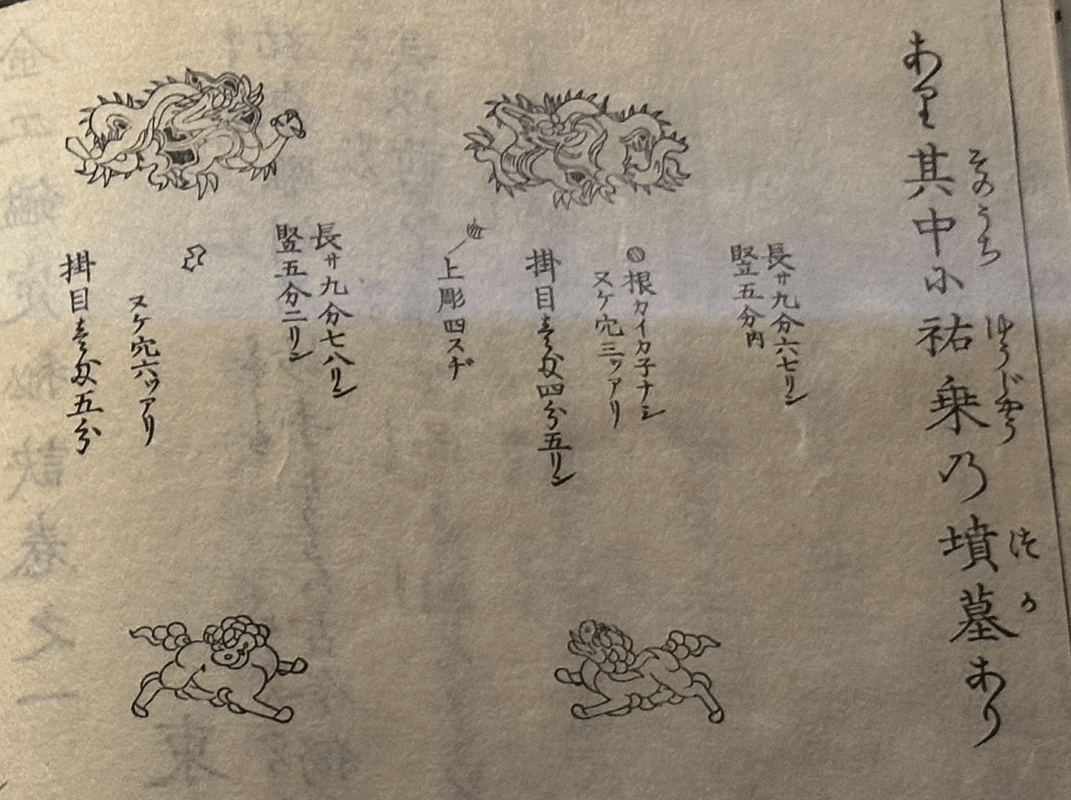 あり其中に祐乗の墳墓あり
そのうち
ゆうじやう
つか
長サ九分六七リン
竪五分内
根カイカ子ナシ
スケ穴三ツアリ
掛目壱匁四分五リン
上彫四スヂ
長サ九分七八リン
竪五分二リン
スケ穴六ツアリ
掛目壱匁五分